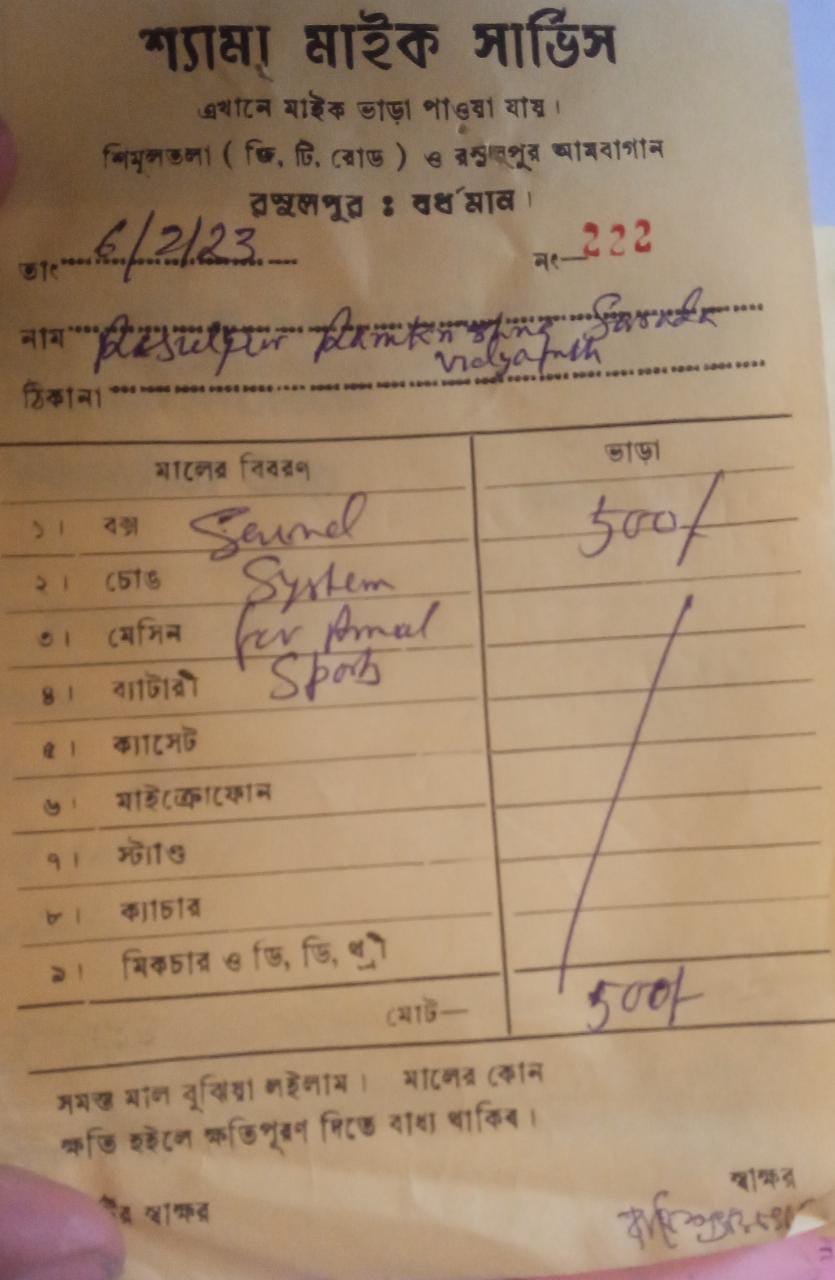 শ্যামা মাইক সার্ভিস
এখানে মাইক ভাড়া পাওয়া যায়।
শিমুলতলা ( জি, টি, রোড ) ও রসুলপুর আমবাগান
রসুলপুর : বর্ধমান।
তাং 6/2/23 নং—222
নাম Rasulpur Ramkrishna Sarada
Vidyapith
ঠিকানা
মালের বিবরণ ভাড়া
১। বক্স Sound 500/
২। চোঙ System
৩। মেসিন for Annual
৪। ব্যাটারী Sports
৫। ক্যাসেট
৬। মাইক্রোফোন
৭। স্ট্যাণ্ড
৮। ক্যাচার
৯। মিকচার ও ডি, ডি, থ্রী
মোট— 500/-
সমস্ত মাল বুঝিয়া লইলাম। মালের কোন
ক্ষতি হইলে ক্ষতিপূরণ দিতে বাধ্য থাকিব।
স্বাক্ষর
স্বাক্ষর